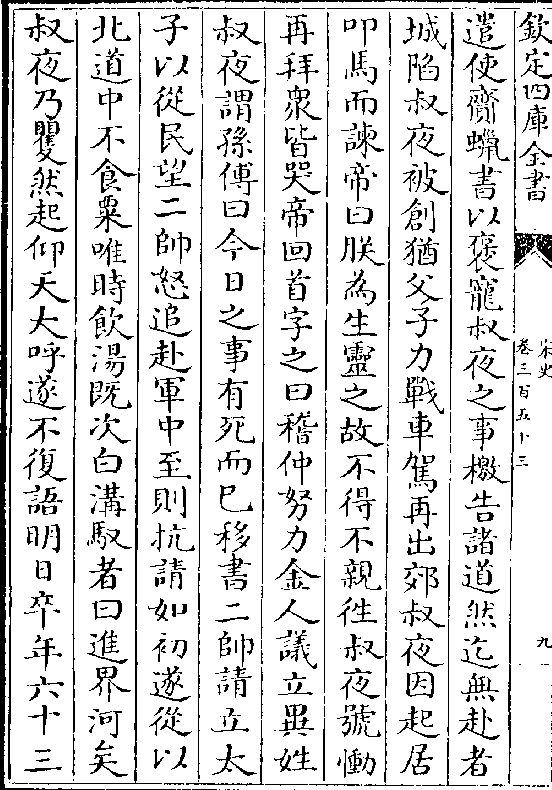 欽定四庫全書
宋史
卷三百五十三
九
遣使齎蠟書以褒寵叔夜之事檄告諸道然迄無赴者
城陷叔夜被創猶父子力戰車駕再出郊叔夜因起居
叩馬而諫帝曰朕為生靈之故不得不親徃叔夜號慟
再拜衆皆哭帝回首字之曰稽仲努力金人議立異姓
叔夜謂孫傅曰今日之事有死而已移書二帥請立太
子以從民望二帥怒追赴軍中至則抗請如初遂從以
北道中不食粟唯時飲湯既次白溝馭者曰進界河矣
叔夜乃矍然起仰天大呼遂不復語明日卒年六十三